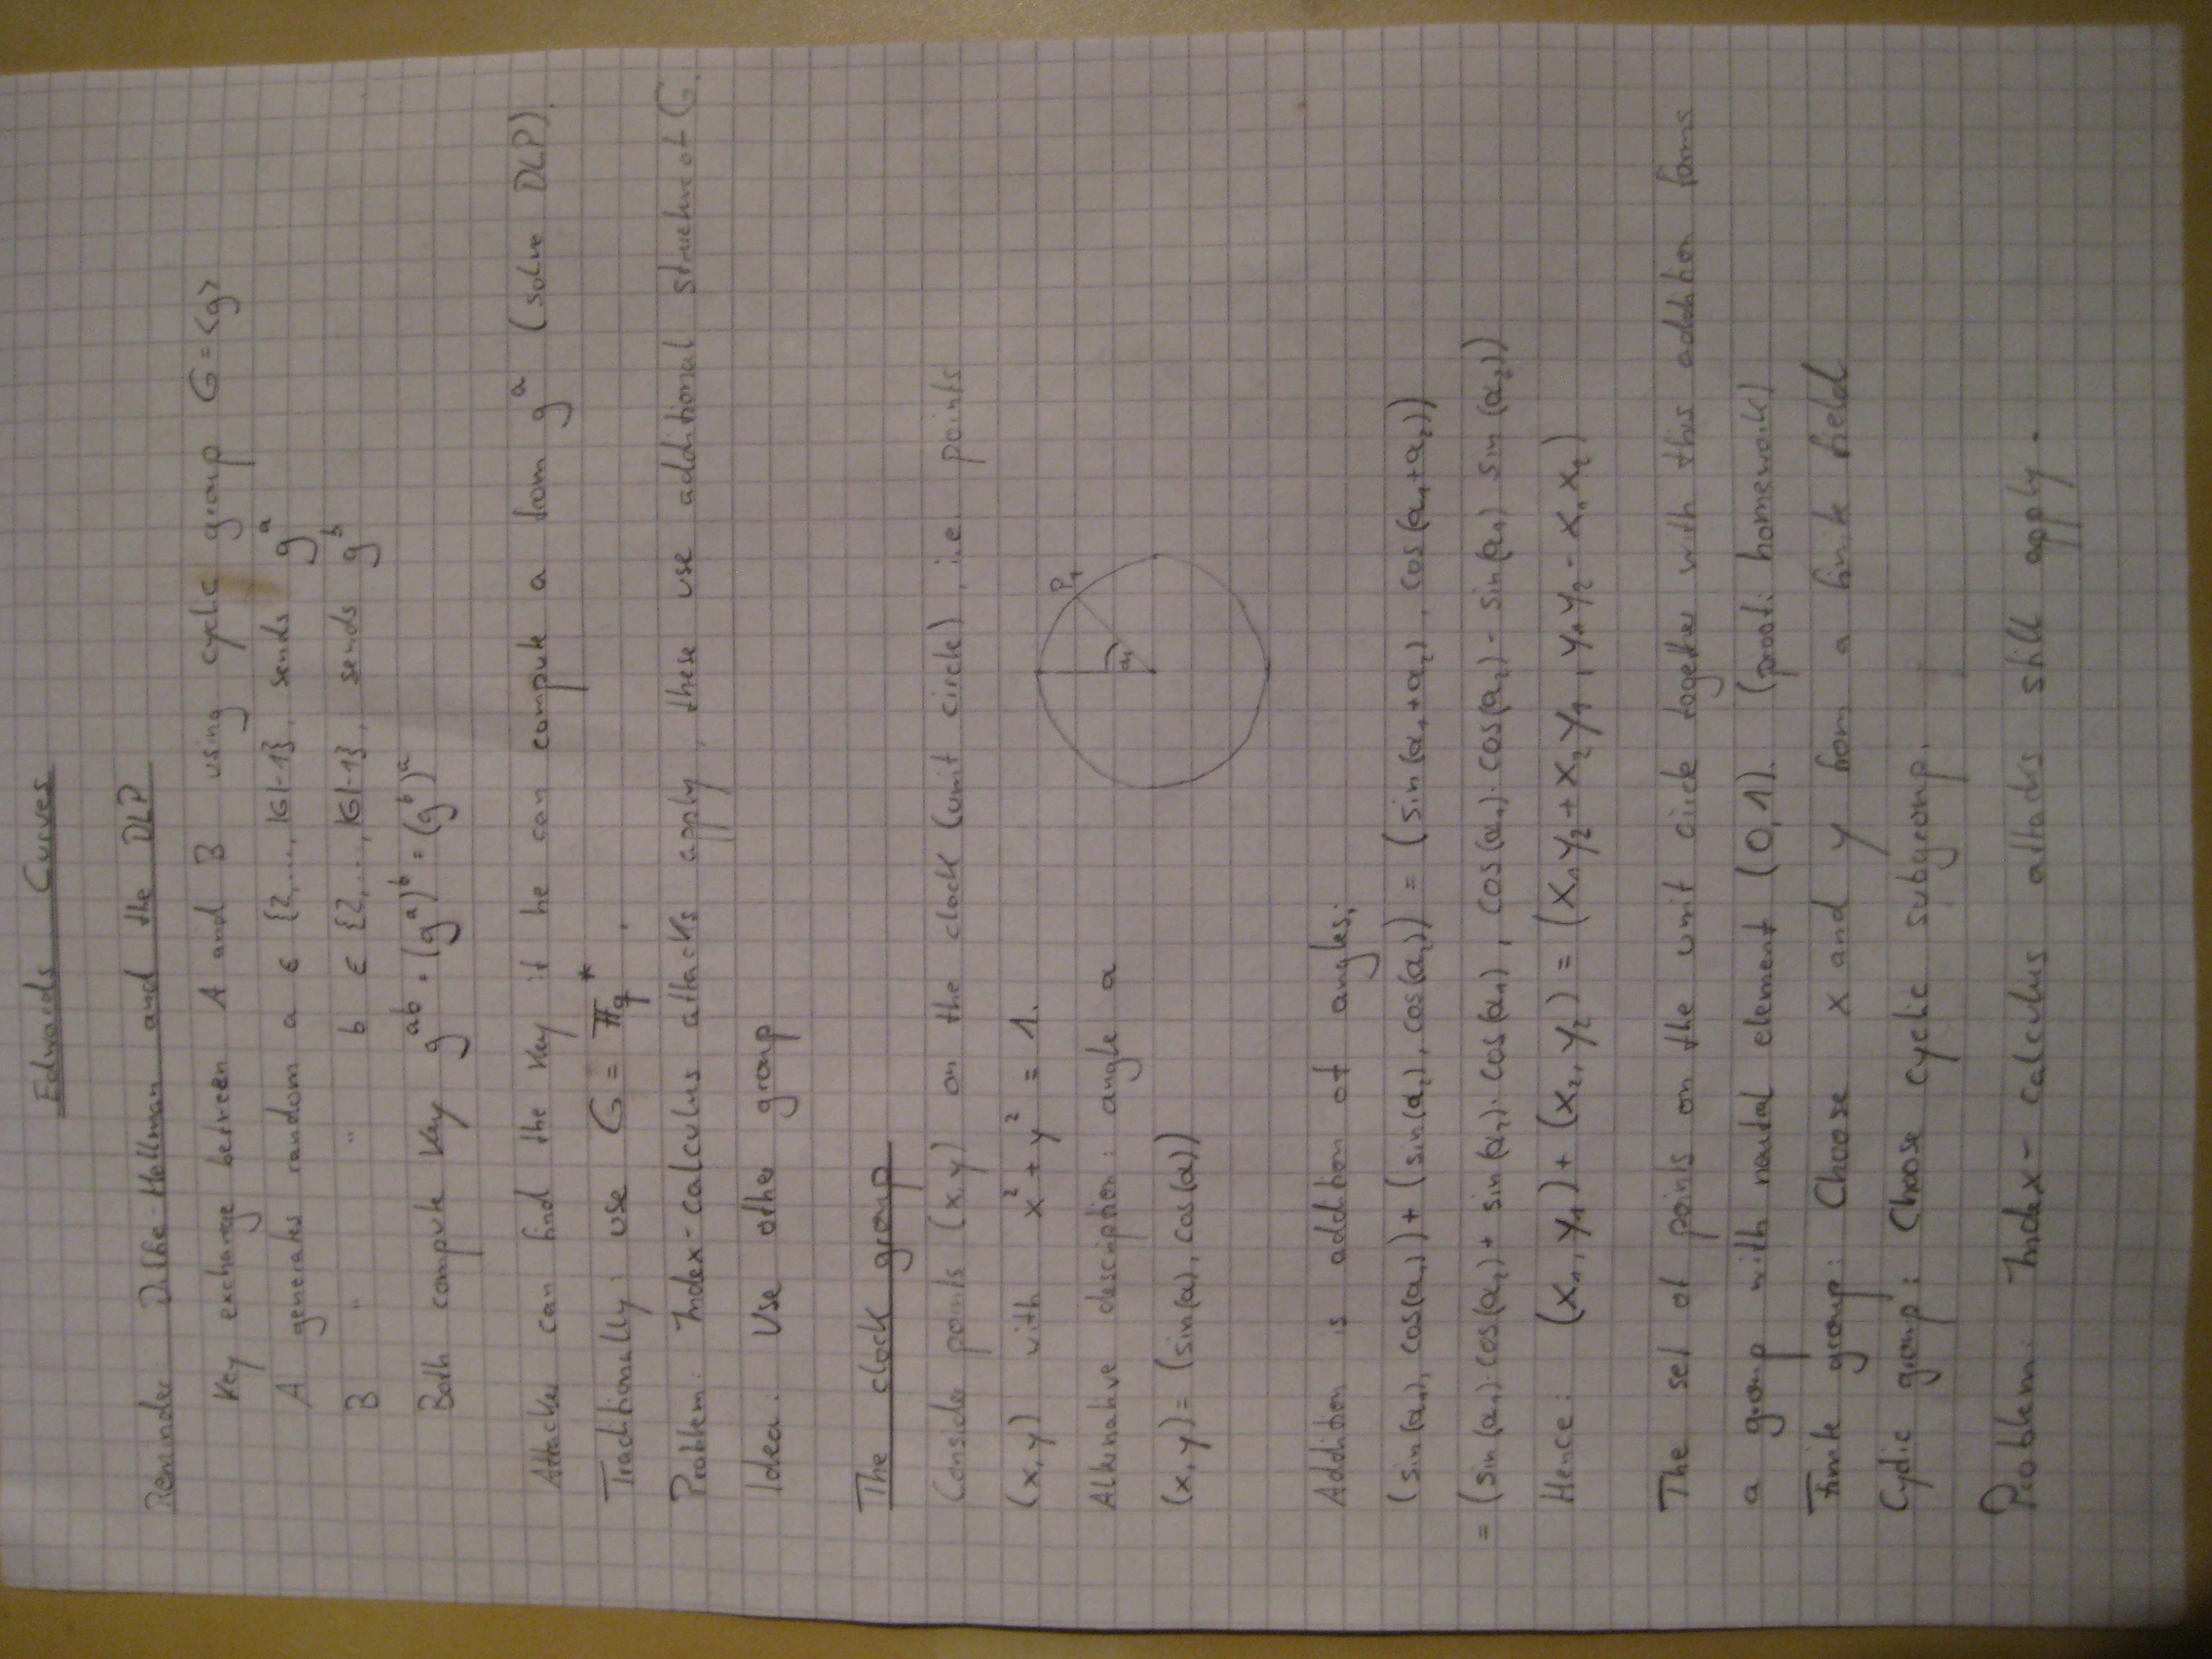 Edwards Curves
Reminder: Diffie-Hellman and the DLP
Key exchange between A and B using cyclic group G = <g>
A generates random a ∈ {2,..., |G|-1}, sends g^a
B " " b ∈ {2,..., |G|-1}, sends g^b
Both compute key g^ab = (g^a)^b = (g^b)^a
Attacker can find the key if he can compute a from g^a (solve DLP).
Traditionally: use G = F_q^*.
Problem: Index-calculus attacks apply, these use additional structure of G.
Idea: Use other group
The clock group
Consider points (x,y) on the clock (unit circle), i.e. points
(x,y) with x² + y² = 1.
Alternative description: angle α
(x,y) = (sin(α), cos(α))
P₁
α₁
Addition is addition of angles:
(sin(α₁), cos(α₁)) + (sin(α₂), cos(α₂)) = (sin(α₁+α₂), cos(α₁+α₂))
= (sin(α₁)·cos(α₂) + sin(α₂)·cos(α₁), cos(α₁)·cos(α₂) - sin(α₁) sin(α₂))
Hence: (x₁, y₁) + (x₂, y₂) = (x₁y₂ + x₂y₁, y₁y₂ - x₁x₂)
The set of points on the unit circle together with this addition forms
a group with neutral element (0,1). (proof: homework)
Finite group: Choose x and y from a finite field
Cyclic group: Choose cyclic subgroup.
Problem: Index-calculus attacks still apply.